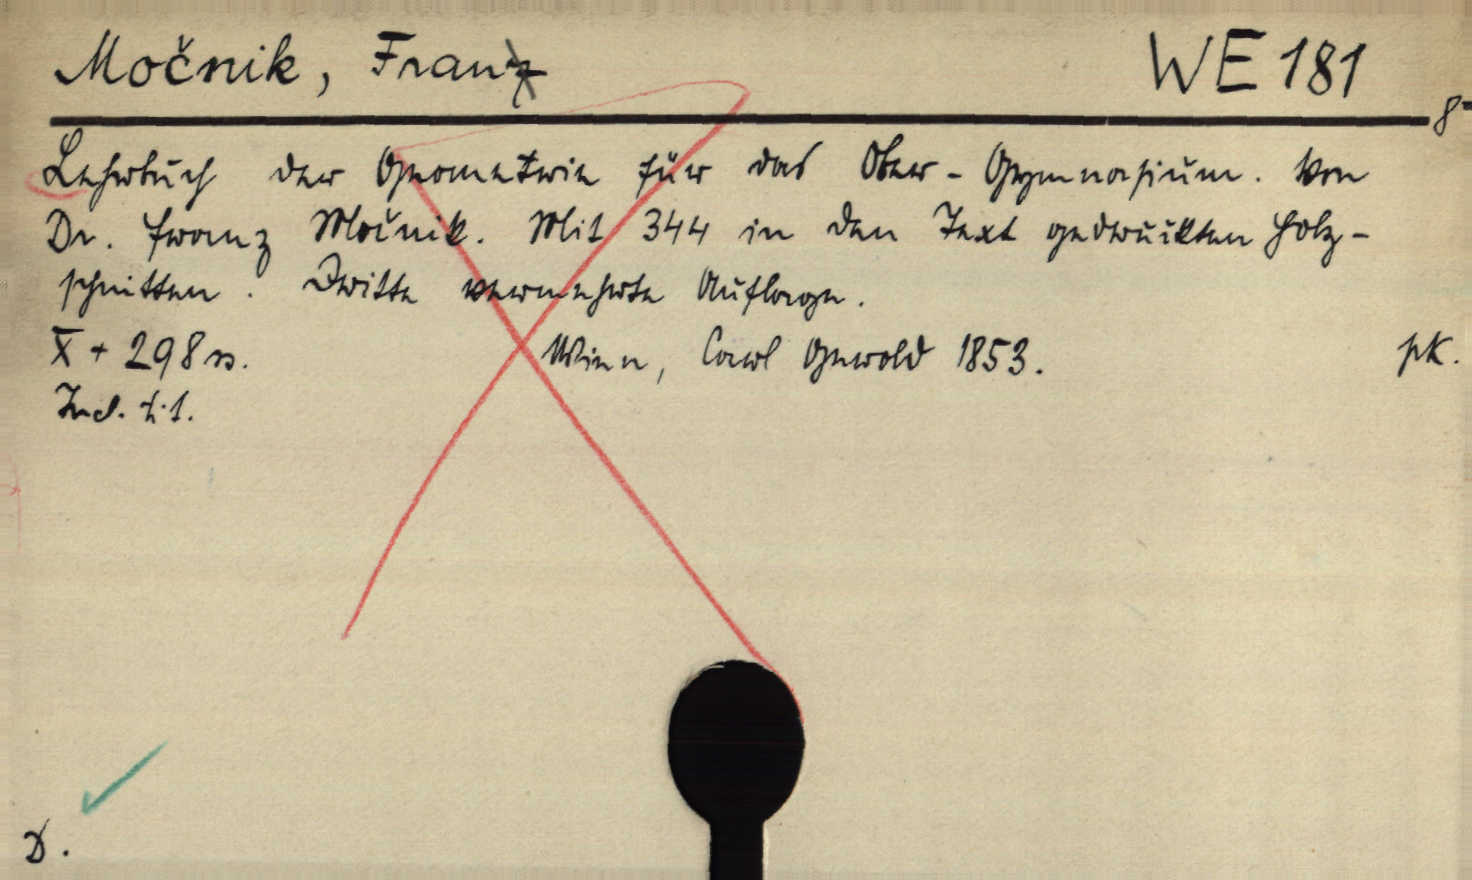 Močnik, Franz WE 181
8°
Lehrbuch der Geometrie für das Ober-Gymnasium. Von
Dr. Franz Močnik. Mit 344 in den Text gedruckten Holz-
schnitten. Dritte vermehrte Auflage.
X + 298 s. Wien, Carl Gerold 1853. pk.
Incl. t. 1.
D.